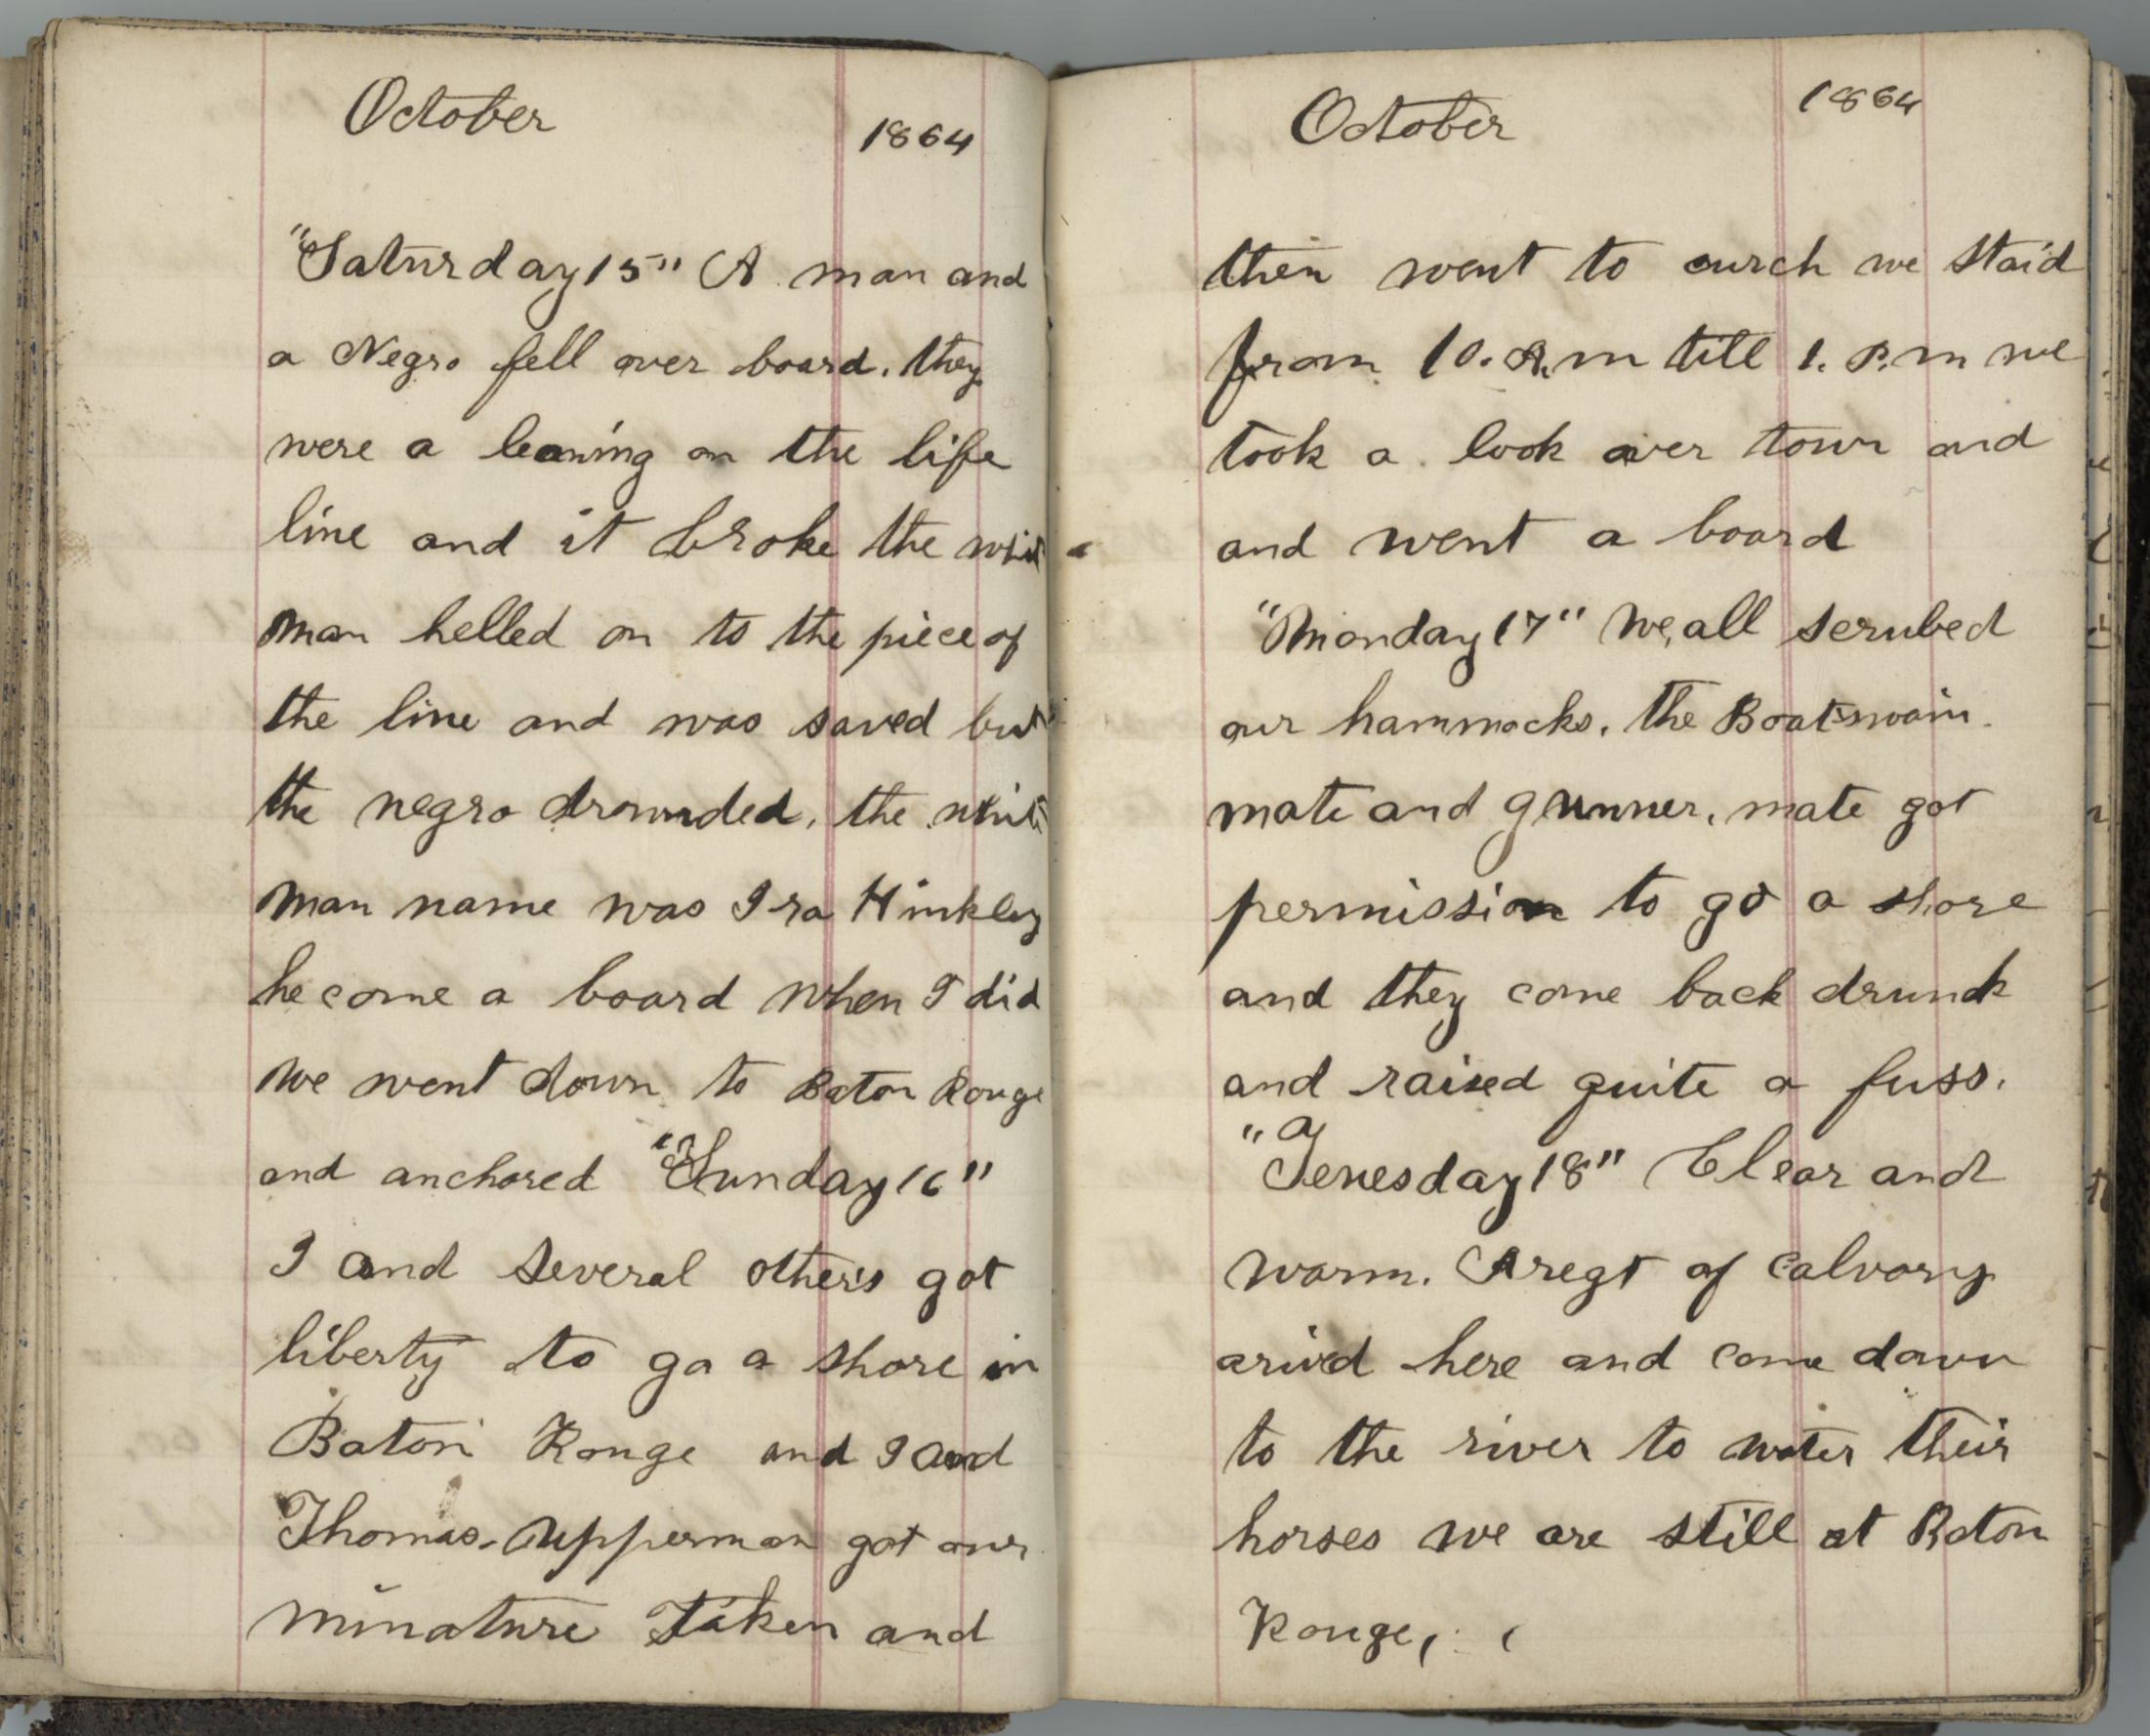 October
1864
"Saturday 15" A man and
a Negro fell over board. they
were a leaning on the life
line and it broke the whit
man helled on to the piece of
the line and was saved but
the negro drownded, the white
man name was Ira Hinkley
he come a board when I did
we went down to Baton Rouge
and anchored "Sunday 16"
I and several others got
liberty to go a shore in
Baton Rouge and I and
Thomas. Upperman got our
minature Taken and
October
1864
then went to curch we staid
from 10. A.m till 1. P.m we
took a look over town and
and went a board
"Monday 17" We, all scrubed
our hammocks. the Boatswain.
mate and gunner, mate got
permission to go a shore
and they come back drunk
and raised quite a fuss.
"Teuesday 18" Clear and
warm. A regt of calvary
arived here and come down
to the river to water their
horses we are still at Baton
Rouge,